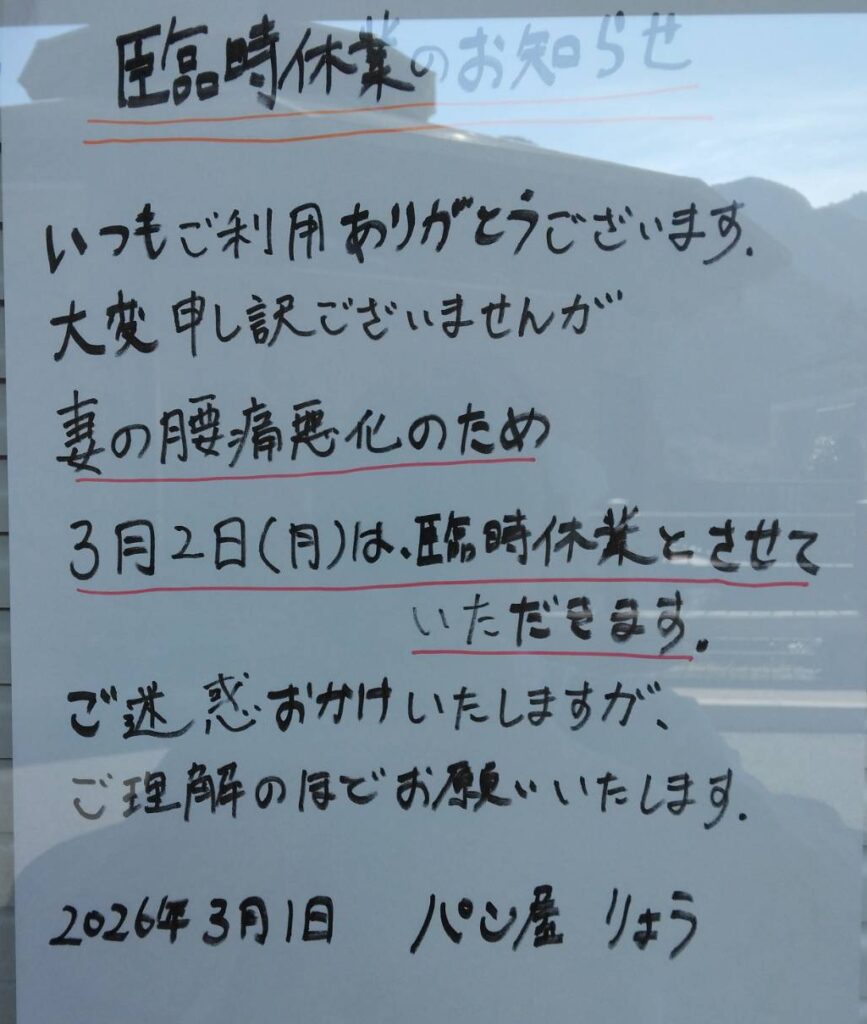 臨時休業のお知らせ
いつもご利用ありがとうございます.
大変申し訳ございませんが
妻の腰痛悪化のため
3月2日(月)は、臨時休業とさせて
いただきます.
ご迷惑おかけいたしますが、
ご理解のほどお願いいたします.
2026年3月1日 パン屋 りょう